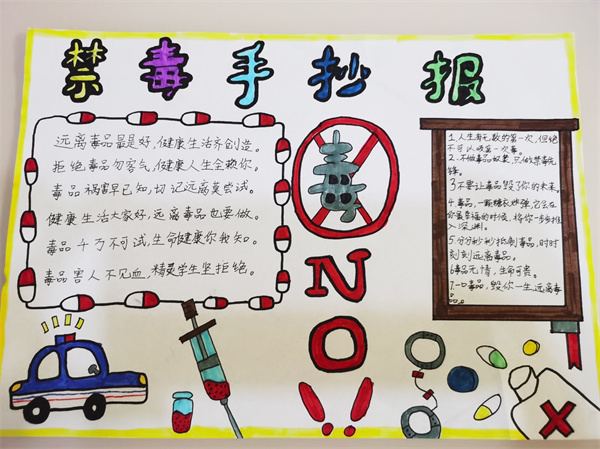 禁毒手抄报
远离毒品最是好,健康生活齐创造。
拒绝毒品勿客气,健康人生全赖你。
毒品祸害早已知,切记远离莫尝试。
健康生活大家好,远离毒品也要做。
毒品千万不可试,生命健康你我知。
毒品害人不见血,精灵学生坚拒绝。
NO!!
1.人生有无数的第一次,但绝
不可以吸第一次毒。
2.不做毒品奴隶,只做禁毒先
锋。
3不要让毒品毁了你的未来。
4.毒品,一颗糖衣炸弹,它会在
你最幸福的时候,将你一步步推
入深渊。
5分分秒秒抵制毒品,时时
刻刻远离毒品。
6毒品无情,生命可贵。
7.一口毒品,毁你一生,远离毒
品。